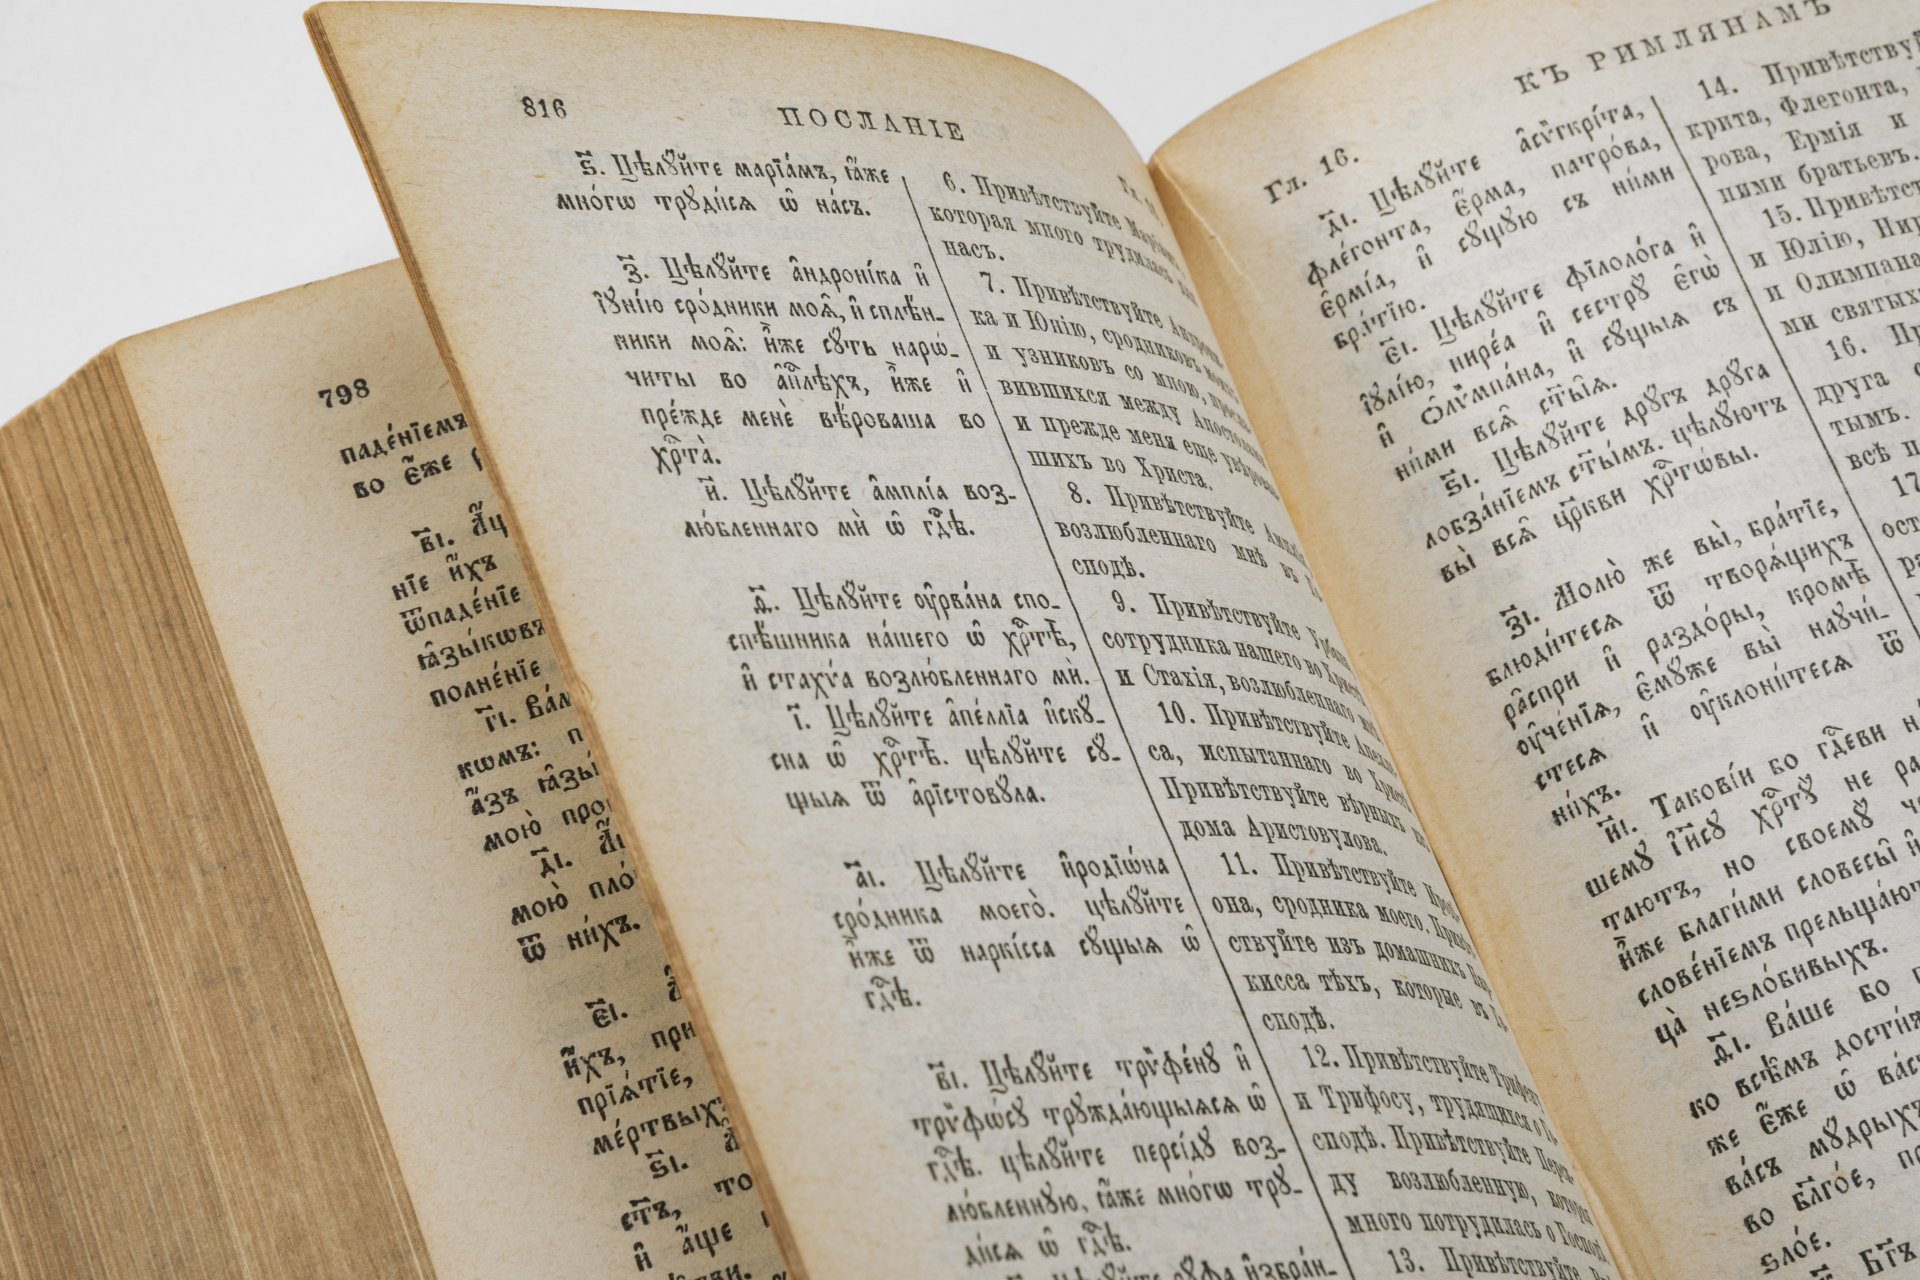 798
паде́нїемъ
во є҆́же
в҃і.
нїе и҆́хъ
ѿпаде́нїе
ꙗ҆зы́кѡвъ
полне́нїе
г҃і.
кѡмъ:
а҆́зъ
мою̀
д҃і.
мою̀
ѿ ни́хъ.
є҃і.
и҆́хъ,
прїѧ́тїе,
ме́ртвыхъ
ѕ҃і.
и҆ а҆́ще
816
ПОСЛАНІЕ
ѕ҃. Цѣлꙋ́йте марїа́мъ, ꙗ҆́же
мно́гѡ трꙋди́сѧ ѡ҆ на́съ.
з҃. Цѣлꙋ́йте а҆ндроні́ка и҆
і҆ꙋні́ю сро́дники моѧ̑, и҆ сплѣ̑н-
ники моѧ̑: и҆̀же сꙋ́ть нарѡ́-
читы во а҆пⷭ҇лѣхъ, и҆̀же и҆
пре́жде менє̀ вѣ́роваша во
хрⷭ҇та̀.
и҃. Цѣлꙋ́йте а҆мплі́а воз-
лю́бленнаго мѝ ѡ҆ гдⷭ҇ѣ.
ѳ҃. Цѣлꙋ́йте ᲂу҆рва́на спо-
спѣ́шника на́шего ѡ҆ хрⷭ҇тѣ̀,
и҆ стахѵ́а возлю́бленнаго мѝ.
і҃. Цѣлꙋ́йте а҆пе́ллїа и҆скꙋ́-
сна ѡ҆ хрⷭ҇тѣ̀. цѣлꙋ́йте сꙋ́-
щыѧ ѿ а҆рїстовꙋ́ла.
а҃і. Цѣлꙋ́йте и҆родїѡ́на
сро́дника моего̀. цѣлꙋ́йте
и҆̀же ѿ наркі́сса сꙋ́щыѧ ѡ҆
гдⷭ҇ѣ.
в҃і. Цѣлꙋ́йте трѷфе́нꙋ и҆
трѷфѡ́сꙋ трꙋжда́ющыѧсѧ ѡ҆
гдⷭ҇ѣ. цѣлꙋ́йте персі́дꙋ воз-
лю́бленнꙋю, ꙗ҆́же мно́гѡ трꙋ-
ди́сѧ ѡ҆ гдⷭ҇ѣ.
Цѣлꙋ́йте рꙋ́фа и҆збра́н-
6. Привѣтствуйте
которая много трудилась
насъ.
7. Привѣтствуйте
ка и Юнію, сродниковъ
и узниковъ со мною,
вившихся между
и прежде меня еще
шихъ во Христа.
8. Привѣтствуйте
возлюбленнаго мнѣ въ
сподѣ.
9. Привѣтствуйте
сотрудника нашего во
и Стахія, возлюбленнаго
10. Привѣтствуйте
са, испытаннаго во
Привѣтствуйте вѣрныхъ
дома Аристовулова.
11. Привѣтствуйте
она, сродника моего.
ствуйте изъ домашнихъ
кисса тѣхъ, которые въ
сподѣ.
12. Привѣтствуйте
и Трифосу, трудящихся о
сподѣ. Привѣтствуйте
ду возлюбленную,
много потрудилась о
13. Привѣтствуйте
КЪ РИМЛЯНАМЪ
Гл. 16.
д҃і. Цѣлꙋ́йте а҆сѷгкрі́та,
фле́гонта, є҆́рма, патро́ва,
є҆рмі́а, и҆ сꙋ́щꙋю съ ни́ми
бра́тїю.
є҃і. Цѣлꙋ́йте фїлоло́га и҆
і҆ꙋлі́ю, нире́а и҆ сестрꙋ̀ є҆гѡ̀
и҆ ѻ҆лѷмпа́на, и҆ сꙋ́щыѧ съ
ни́ми всѧ̑ ст҃ы̑ѧ.
ѕ҃і. Цѣлꙋ́йте дрꙋ́гъ дрꙋ́га
лобза́нїемъ ст҃ы́мъ. цѣлꙋ́ютъ
вы̀ всѧ̑ цр҃кви хрⷭ҇тѡ́вы.
з҃і. Молю́ же вы̀, бра́тїе,
блюди́тесѧ ѿ творѧ́щихъ
ра̑спри и҆ раздо́ры, кромѣ̀
ᲂу҆че́нїѧ, є҆мꙋ́же вы̀ наꙋчи́-
стесѧ и҆ ᲂу҆клони́тесѧ ѿ
ни́хъ.
и҃і. Такові́и бо гдⷭ҇еви
шемꙋ̀ і҆и҃сꙋ хрⷭ҇тꙋ̀ не
таютъ, но своемꙋ̀
и҆̀же благи́ми словесы̀ и҆
слове́нїемъ прельща́ютъ
ца̀ неѕло́бивыхъ.
ѳ҃і. Ва́ше бо
ко всѣ̑мъ
же є҆́же ѡ҆ ва́съ
ва́съ мꙋ́дрыхъ
во бл҃го́е,
ѕло́е.
14. Привѣтствуйте
крита, Флегонта,
рова, Ермія и
ними братьевъ.
15.
и Юлію,
и Олимпана,
ми святыхъ
16.
друга
тымъ.
всѣ
17